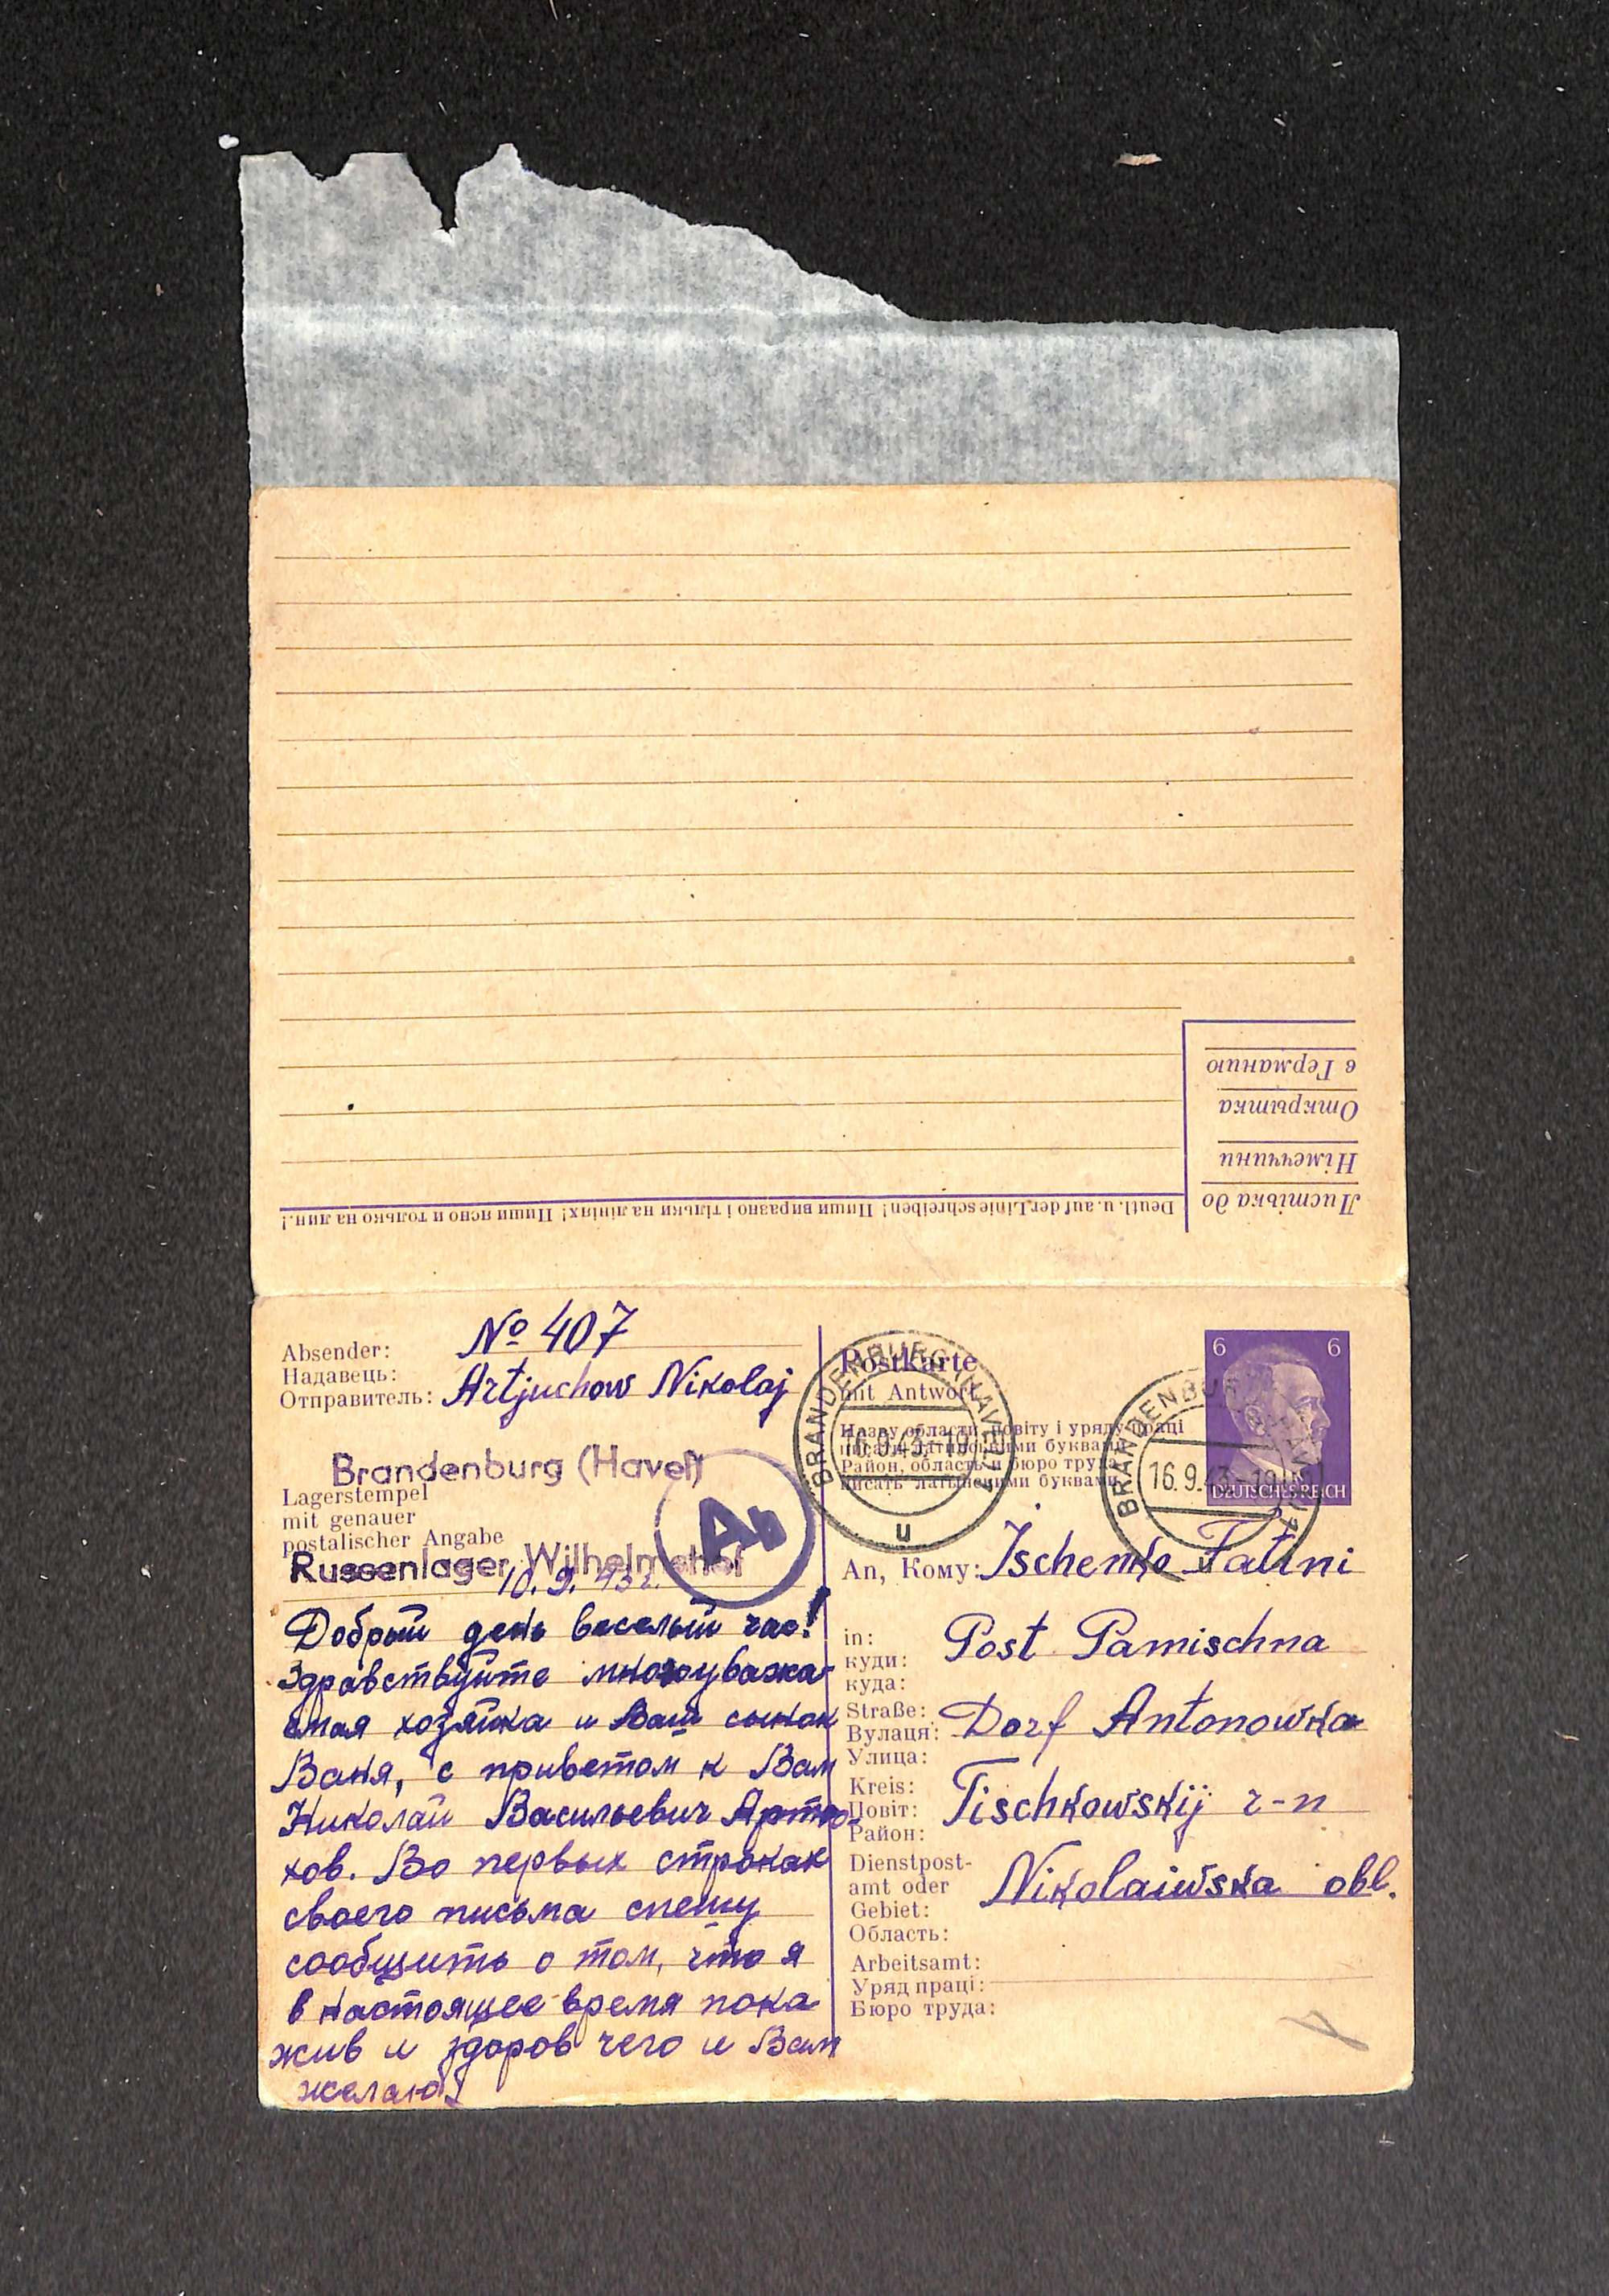 Листівка до
Німеччини
Открытка
в Германию
Deutl. u. auf der Linie schreiben! Пиши виразно і тільки на лініях! Пиши ясно и только на лин.!
Absender:
Надавець:
Отправитель:
№ 407
Artjuchow Nikolaj
Brandenburg (Havel)
Lagerstempel
mit genauer
postalischer Angabe
Russenlager Wilhelmshof
Ab
10.9.43 г.
Добрый день веселый час!
Здравствуйте многоуважа-
емая хозяйка и Ваш сынок
Ваня, с приветом к Вам
Николай Васильевич Артю-
хов. Во первых строках
своего письма спешу
сообщить о том, что я
в настоящее время пока
жив и здоров чего и Вам
желаю.
Postkarte
mit Antwort
Назву области, повіту і уряду праці
писати латинськими буквами
Район, область и бюро труда
писать латынскими буквами
BRANDENBURG (HAVEL)
16.9.43.-19
u
BRANDENBURG (HAVEL)
16.9.43-19
6 6
DEUTSCHES REICH
An, Кому: Ischenko Tatini
in:
куди:
куда:
Post Pamischna
Straße:
Вулаця:
Улица:
Dorf Antonowka
Kreis:
Повіт:
Район:
Tischkowskij r-n
Dienstpost-
amt oder
Gebiet:
Область:
Nikolaiwska obl.
Arbeitsamt:
Уряд праці:
Бюро труда: